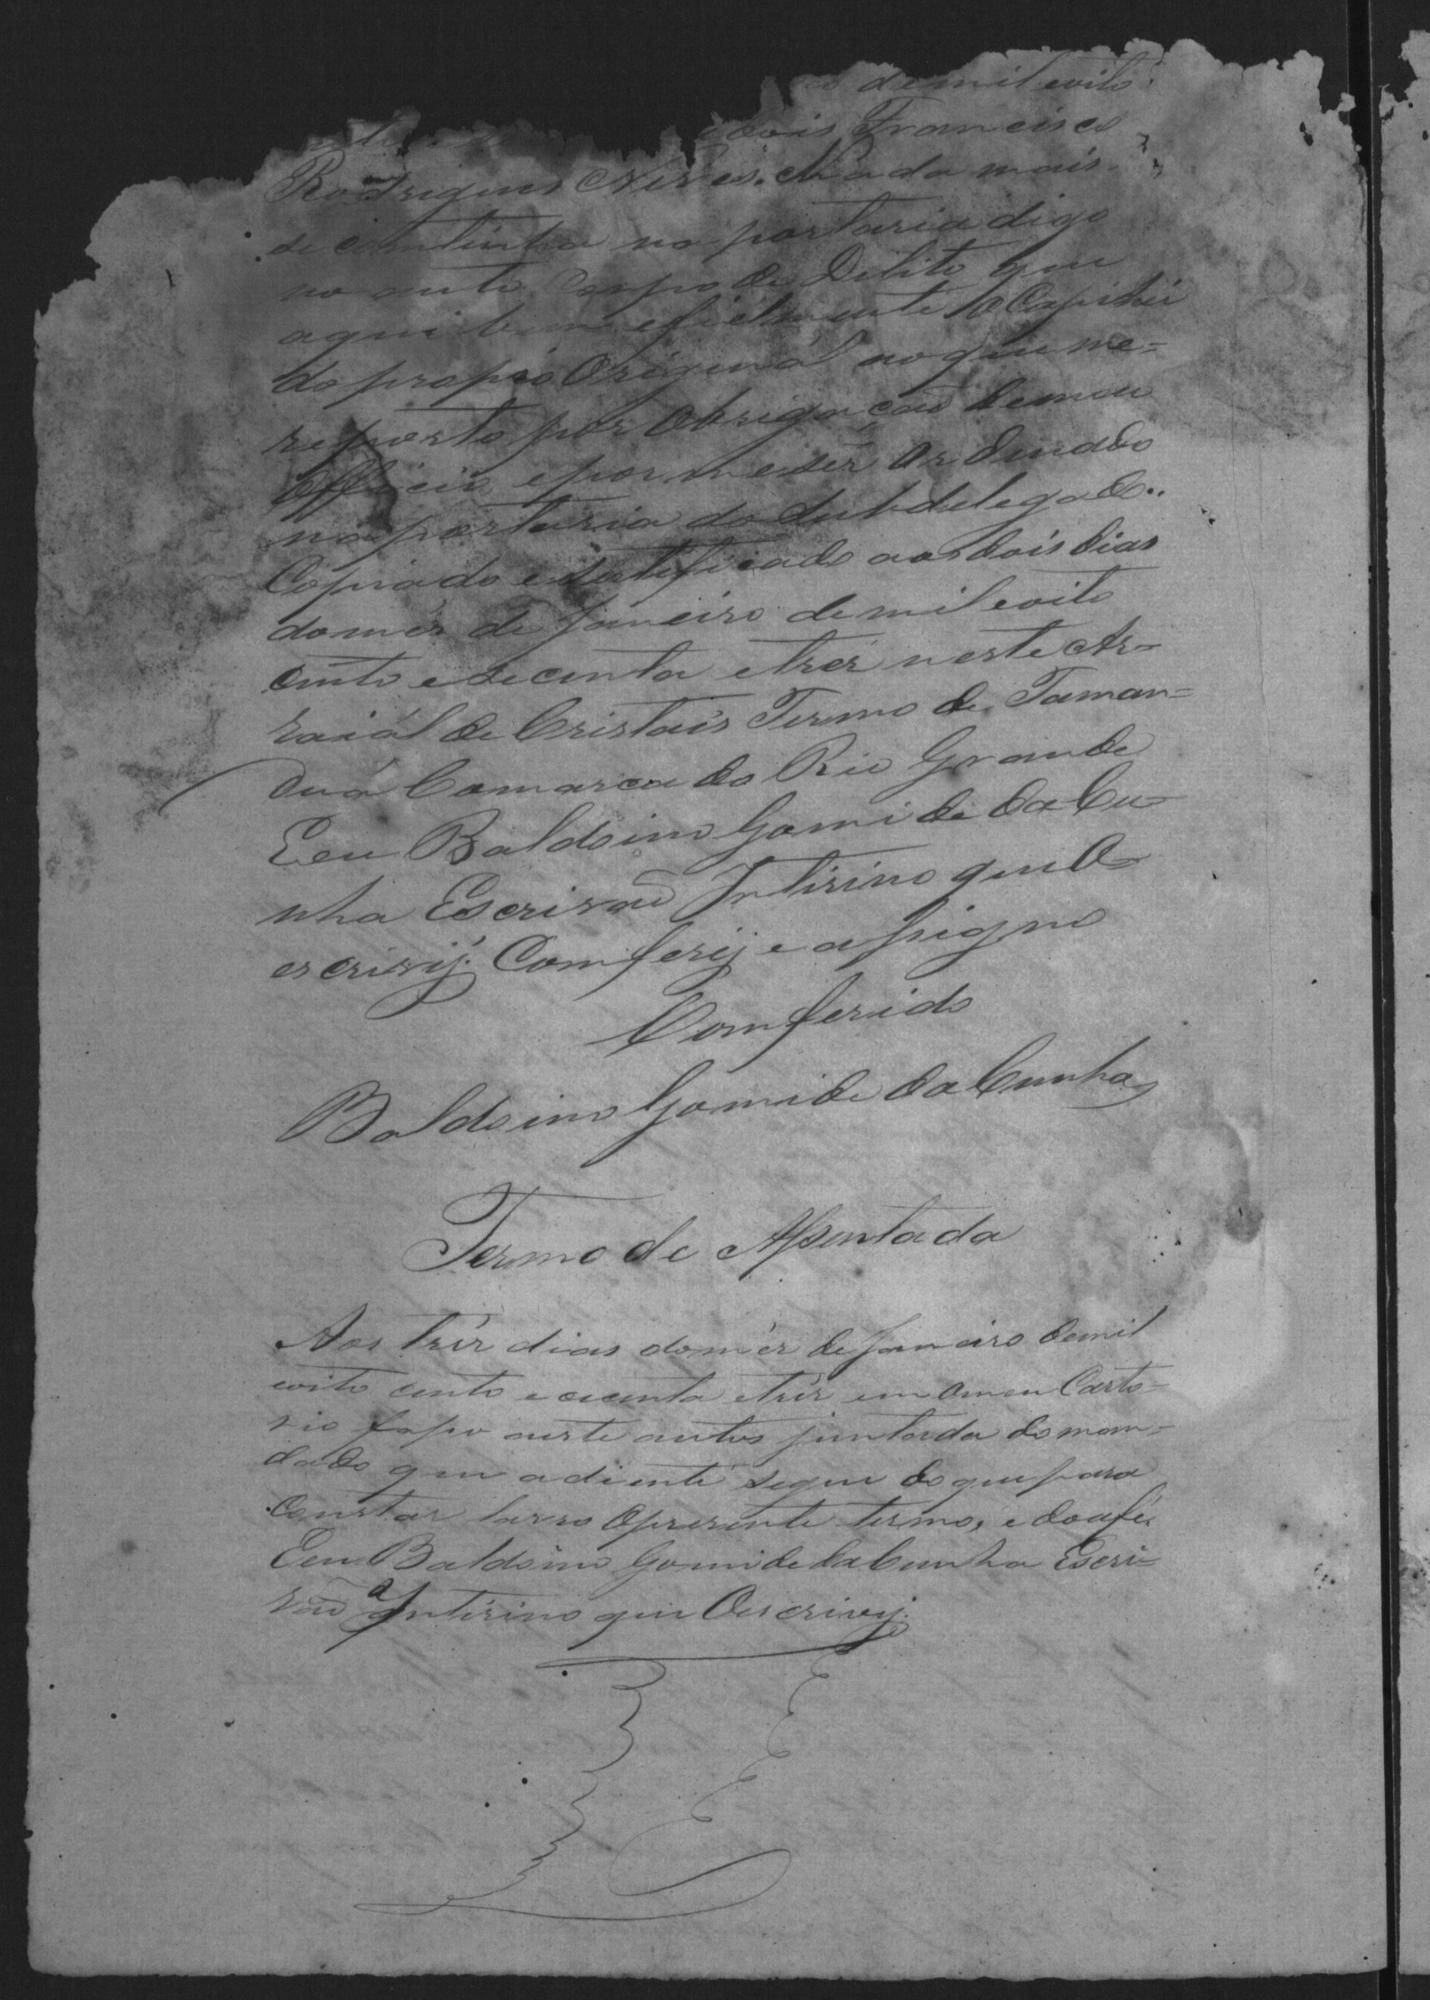 de mil eoito
dois Francisco
Rodrigues Neves. Nada mais
se continha na portaria digo
no auto Corpo de Delito que
aqui bem efielmente o Copiei
do propio Original no que me=
reporto por obrigaçaõ demeu
Officio e por me ser Ordenado
na portaria do Subdelegado..
Copiado e ratificado aos dois dias
domês de Janeiro de mil eoito
cento e secenta etrer neste Ar=
raiál de Cristais Termo de Taman=
duá Comarca do Rio Grande
Eeu Baldoino Gomide da Cu=
nha Escrivaõ Intirino que O=
escrivij. Comferij e assigno
Comferido
Baldoino Gomide da Cunha
Termo de Assentada
Aos trêr dias domêr de Janeiro demil
eoito cento e cecenta etrêr em Omeu Carto=
rio faço neste autos juntada do man=
dado que adiente segue do que para
Constar lavro Opresente termo, e doufé.
Eeu Baldoino Gomide da Cunha Escri=
vaõ Intirino que Oescrivij.